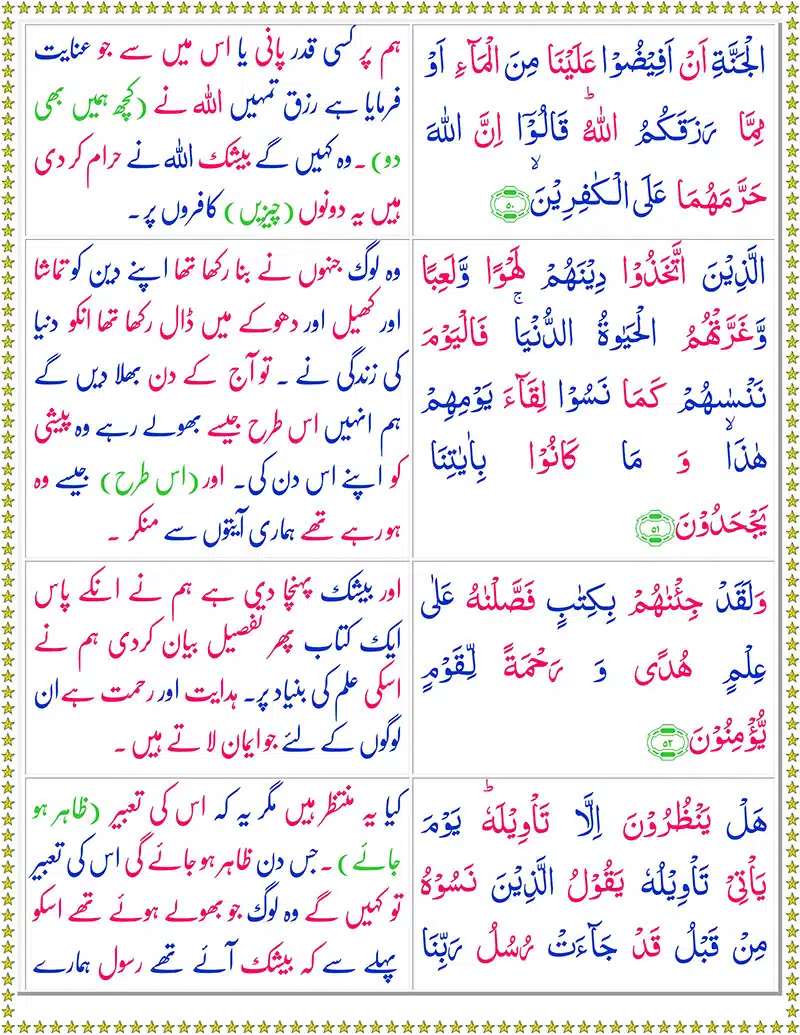 الْجَنَّةِ اَنْ اَفِيْضُوْا عَلَيْنَا مِنَ الْمَآءِ اَوْ
مِمَّا رَزَقَكُمُ اللّٰهُ ؕ قَالُوْۤا اِنَّ اللّٰهَ
حَرَّمَهُمَا عَلَى الْـكٰفِرِيْنَ ۙ ۵۰
ہم پر کسی قدر پانی یا اس میں سے جو عنایت
فرمایا ہے رزق تمہیں اللہ نے (کچھ ہمیں بھی
دو)۔ وہ کہیں گے بیشک اللہ نے حرام کر دی
ہیں یہ دونوں (چیزیں) کافروں پر۔
الَّذِيْنَ اتَّخَذُوْا دِيْنَهُمْ لَهْوًا وَّلَعِبًا
وَّغَرَّتْهُمُ الْحَيٰوةُ الدُّنْيَا ۚ فَالْيَوْمَ
نَنْسٰىهُمْ كَمَا نَسُوْا لِقَآءَ يَوْمِهِمْ
هٰذَا ۙ وَ مَا كَانُوْا بِاٰيٰتِنَا
يَجْحَدُوْنَ ۵۱
وہ لوگ جنہوں نے بنا رکھا تھا اپنے دین کو تماشا
اور کھیل اور دھوکے میں ڈال رکھا تھا انکو دنیا
کی زندگی نے ۔ تو آج کے دن بھلا دیں گے
ہم انہیں اس طرح جیسے بھولے رہے وہ پیشی
کو اپنے اس دن کی۔ اور (اس طرح) جیسے وہ
ہو رہے تھے ہماری آیتوں سے منکر ۔
وَلَقَدْ جِئْنٰهُمْ بِكِتٰبٍ فَصَّلْنٰهُ عَلٰى
عِلْمٍ هُدًى وَ رَحْمَةً لِّقَوْمٍ
يُّؤْمِنُوْنَ ۵۲
اور بیشک پہنچا دی ہے ہم نے انکے پاس
ایک کتاب پھر تفصیل بیان کردی ہم نے
اسکی علم کی بنیاد پر۔ ہدایت اور رحمت ہے ان
لوگوں کے لئے جو ایمان لاتے ہیں ۔
هَلْ يَنْظُرُوْنَ اِلَّا تَاْوِيْلَهٗ ؕ يَوْمَ
يَاْتِىْ تَاْوِيْلُهٗ يَقُوْلُ الَّذِيْنَ نَسُوْهُ
مِنْ قَبْلُ قَدْ جَآءَتْ رُسُلُ رَبِّنَا
کیا یہ منتظر ہیں مگر یہ کہ اس کی تعبیر (ظاہر ہو
جائے)۔ جس دن ظاہر ہو جائے گی اس کی تعبیر
تو کہیں گے وہ لوگ جو بھولے ہوئے تھے اسکو
پہلے سے کہ بیشک آئے تھے رسول ہمارے